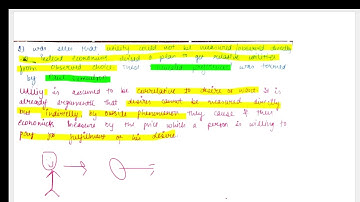 2) was seen that utility could not be measured/answered directly
Instead economist devised a plan to get reliable utilities
from observed choice. This revealed preference was termed
by Paul Samuelson.
Utility is assumed to be correlative to desire or want. It is
already argued that desires cannot be measured directly
but indirectly, by outside phenomenon they cause & their
economics measure by the price which a person is willing to
pay for fulfilment of his desire.